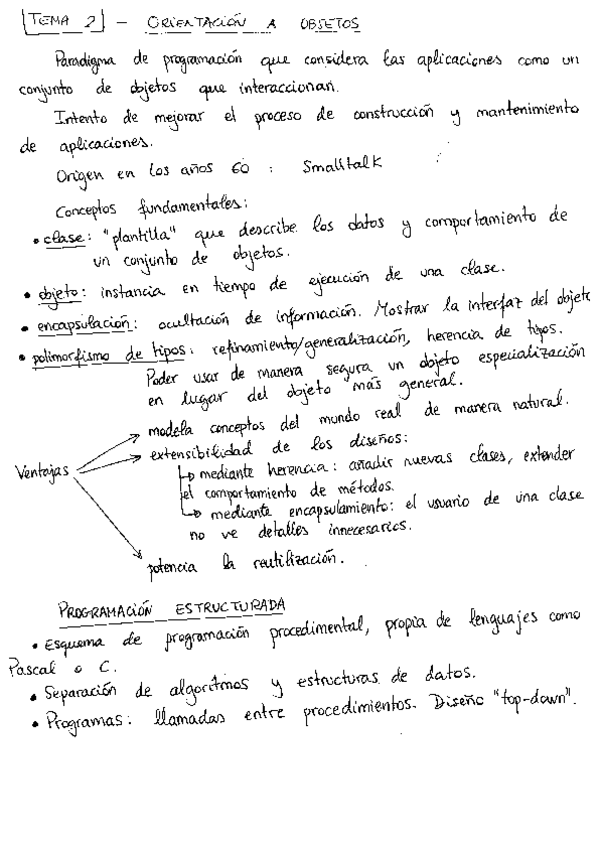 TEMA 2 - ORIENTACIÓN A OBJETOS
Paradigma de programación que considera las aplicaciones como un
conjunto de objetos que interaccionan.
Intento de mejorar el proceso de construcción y mantenimiento
de aplicaciones.
Origen en los años 60 : Smalltalk
Conceptos fundamentales:
• clase: "plantilla" que describe los datos y comportamiento de
un conjunto de objetos.
• objeto: instancia en tiempo de ejecución de una clase.
• encapsulación: ocultación de información. Mostrar la interfaz del objeto
• polimorfismo de tipos: refinamiento/generalización, herencia de tipos.
Poder usar de manera segura un objeto especialización
en lugar del objeto más general.
Ventajas
modela conceptos del mundo real de manera natural.
extensibilidad de los diseños:
mediante herencia: añadir nuevas clases, extender
el comportamiento de métodos.
mediante encapsulamiento: el usuario de una clase
no ve detalles innecesarios.
potencia la reutilización.
PROGRAMACIÓN ESTRUCTURADA
• Esquema de programación procedimental, propia de lenguajes como
Pascal o C.
• Separación de algoritmos y estructuras de datos.
• Programas: llamadas entre procedimientos. Diseño "top-down".